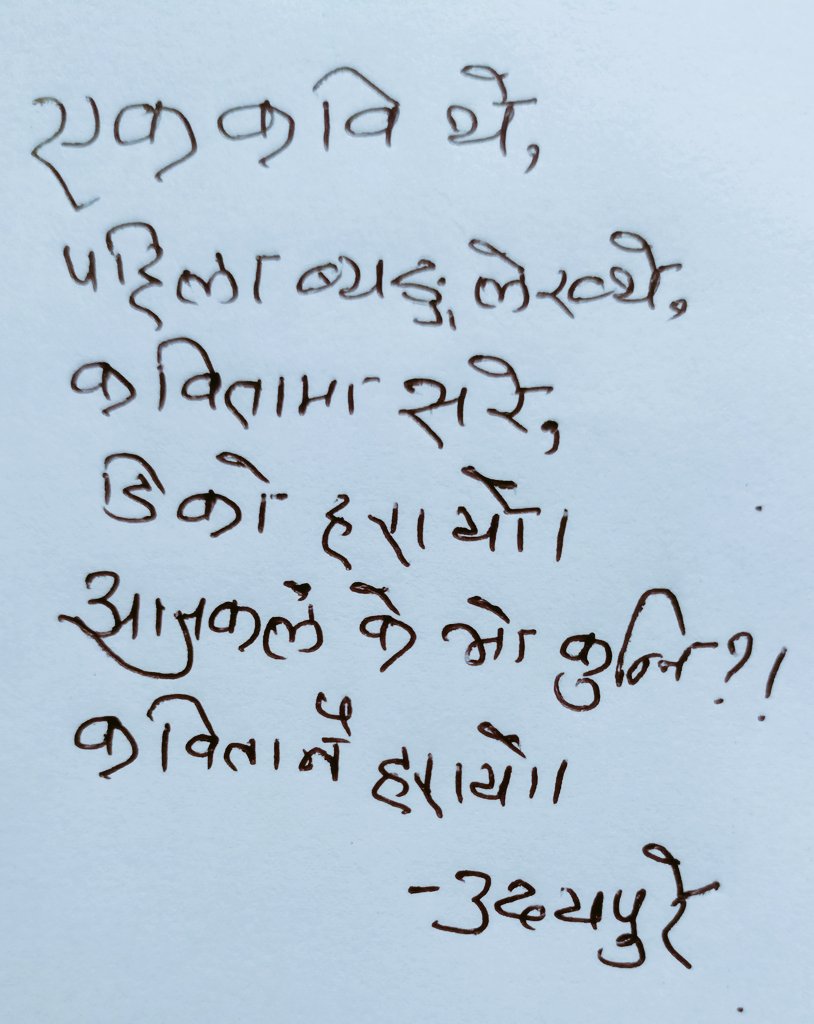 एक कवि थे,
पहिला ब्यङ्ग लेख्थे,
कवितामा सरे,
डिको हरायो।
आजुकल के भो कुन्नि?!
कवितानै हरायो।
-उदयपुरे